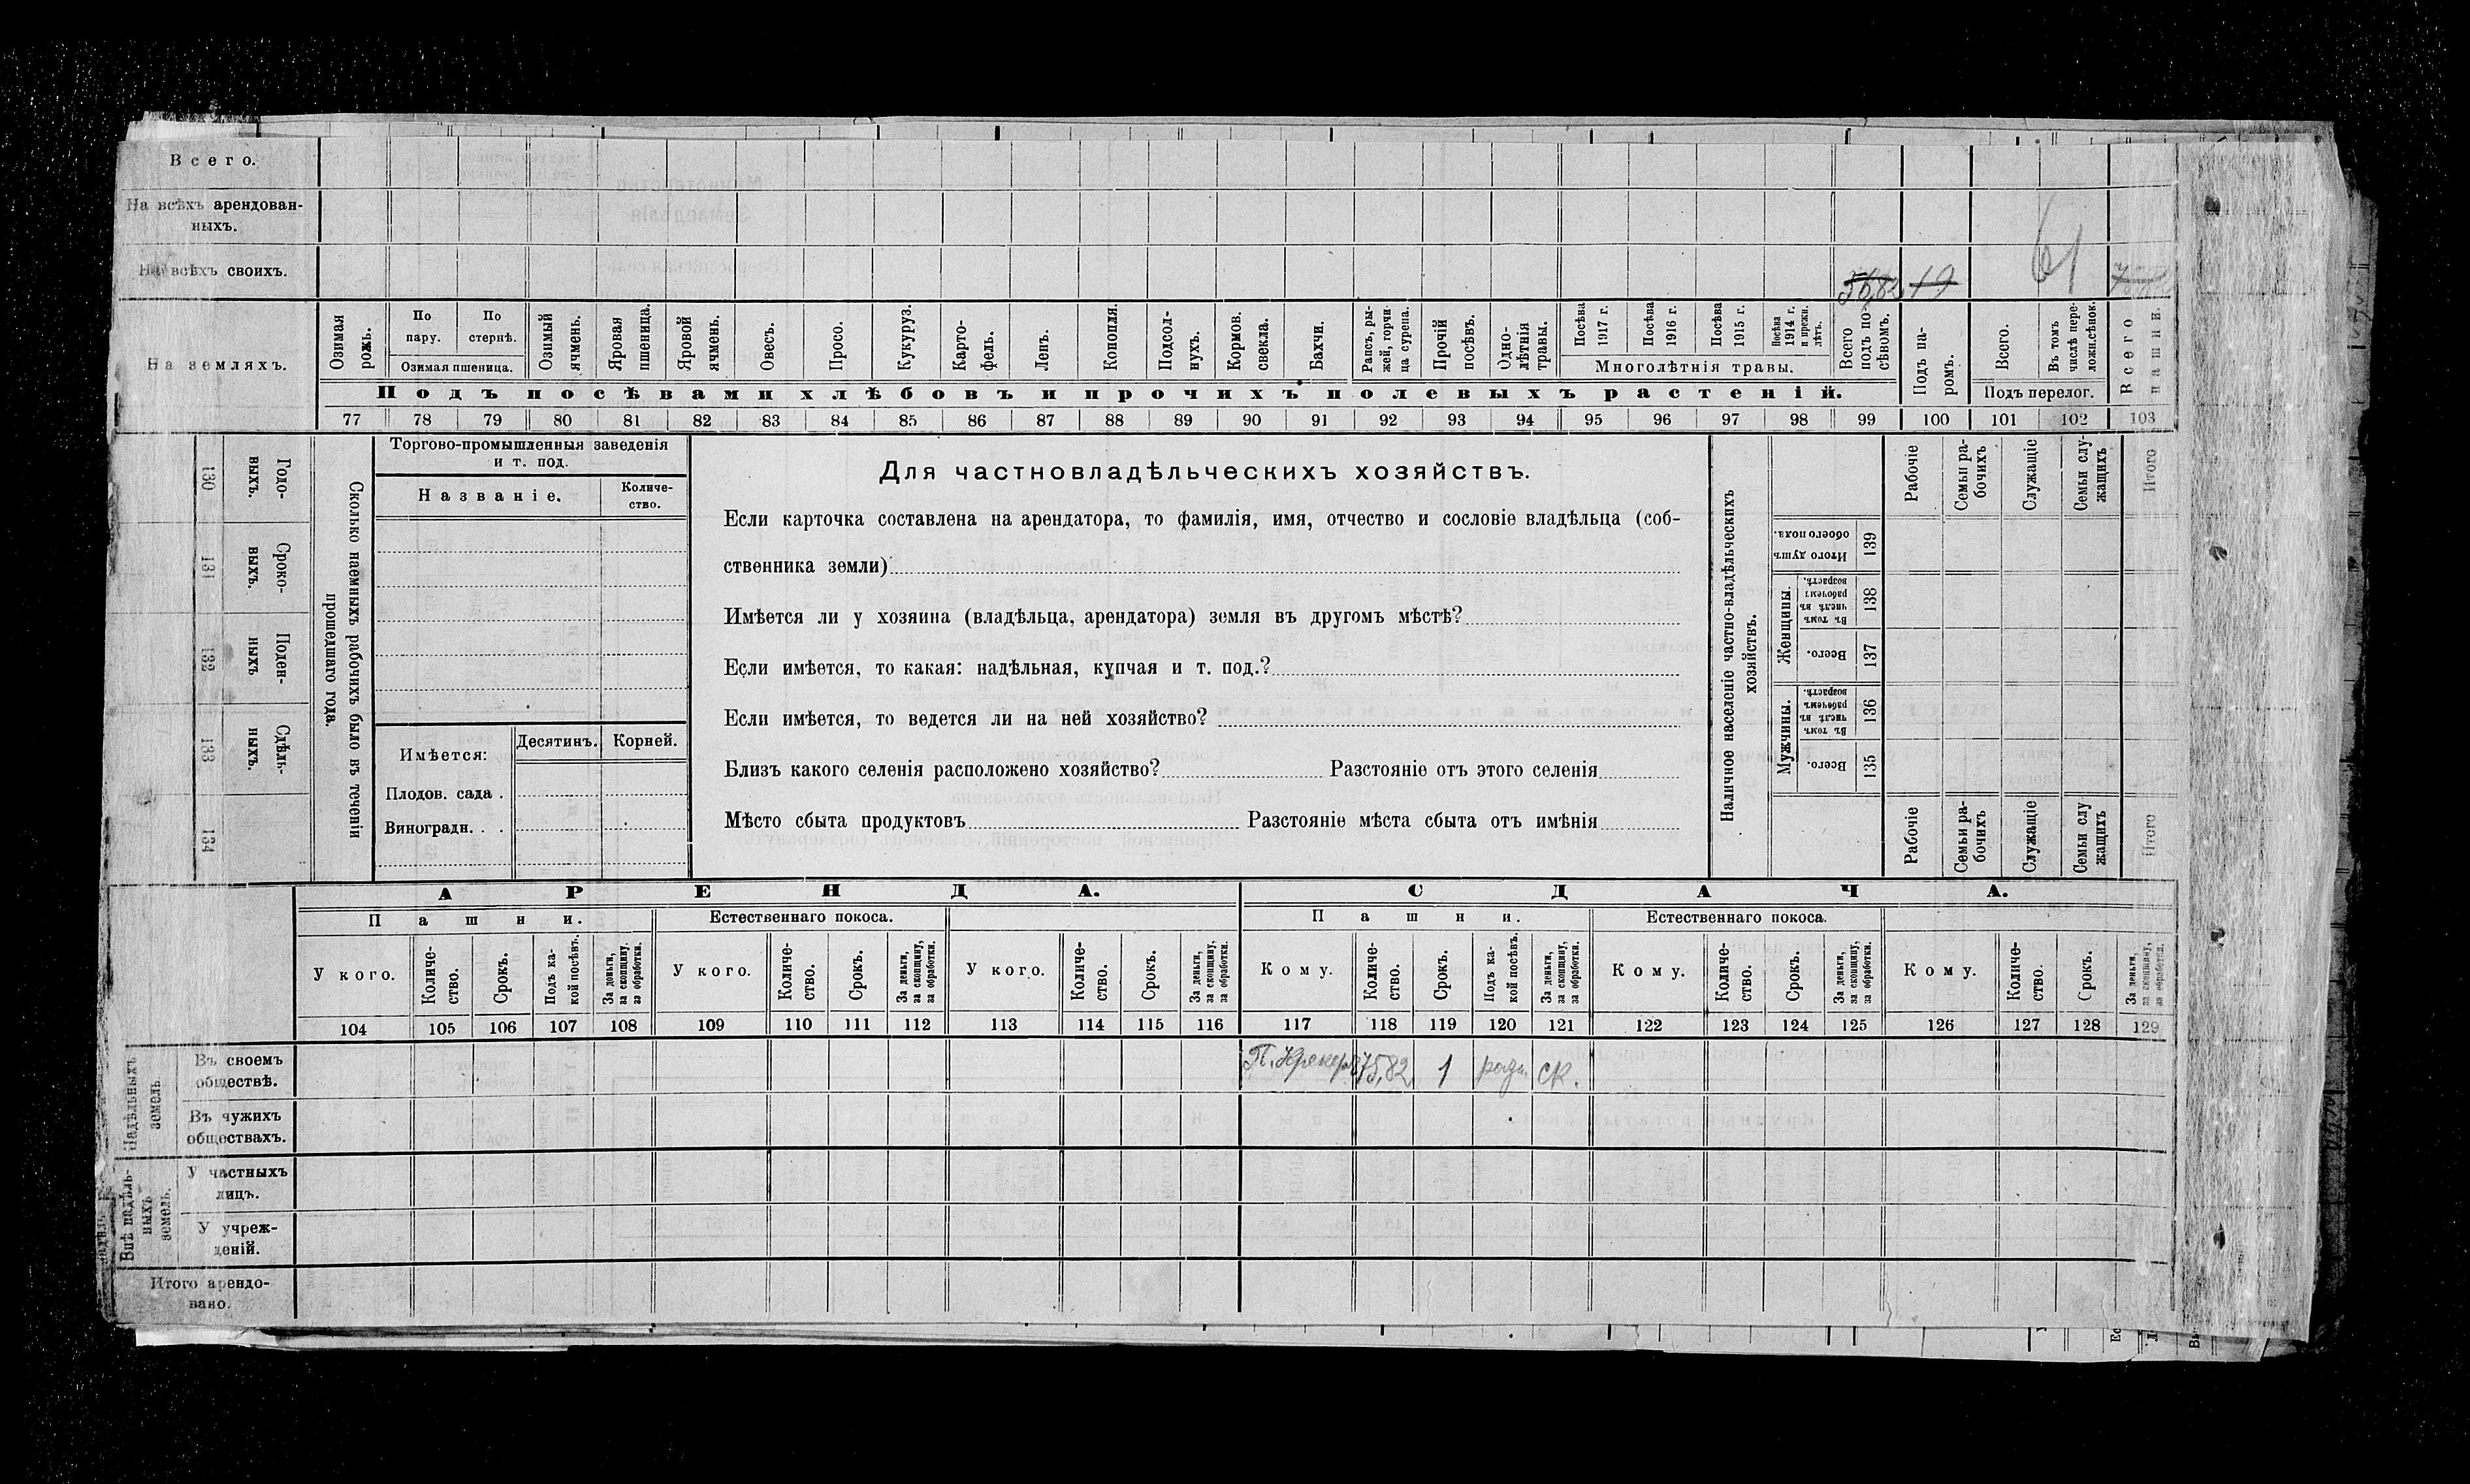 Всего.
На всѣхъ арендован-
ныхъ.
На всѣхъ своихъ.
56,82 19 61
На земляхъ.
Озимая рожь.
По пару.
По стернѣ.
Озимая пшеница.
Озимый ячмень.
Яровая пшеница.
Яровой ячмень.
Овесъ.
Просо.
Кукуруз.
Карто-
фель.
Ленъ.
Конопля.
Подсол-
нухъ.
Кормов. свекла.
Бахчи.
Рапсъ, ры-
жей, горчи-
ца сурепа.
Прочій посѣвъ.
Одно-
лѣтнія травы.
Посѣва 1917 г.
Посѣва 1916 г.
Посѣва 1915 г.
Посѣва 1914 г. и прежн. лѣтъ.
Многолѣтнія травы.
Всего подъ по-
сѣвомъ.
Подъ па-
ромъ.
Всего.
Въ томъ числѣ пере-
ложн.сѣнок.
Подъ перелог.
Всего пашни.
Подъ посѣвами хлѣбовъ и прочихъ полевыхъ растеній.
77 78 79 80 81 82 83 84 85 86 87 88 89 90 91 92 93 94 95 96 97 98 99 100 101 102 103
130 Годо-
выхъ.
131 Сроко-
выхъ.
132 Поден-
ныхъ
133 Сдѣль-
ныхъ.
134
Сколько наемныхъ рабочихъ было въ теченіи
прошедшаго года.
Торгово-промышленныя заведенія
и т. под.
Названіе.
Количе-
ство.
Имѣется:
Десятинъ.
Корней.
Плодов. сада .
Виноградн. . .
Для частновладѣльческихъ хозяйствъ.
Если карточка составлена на арендатора, то фамилія, имя, отчество и сословіе владѣльца (соб-
ственника земли)
Имѣется ли у хозяина (владѣльца, арендатора) земля въ другомъ мѣстѣ?
Если имѣется, то какая: надѣльная, купчая и т. под.?
Если имѣется, то ведется ли на ней хозяйство?
Близъ какого селенія расположено хозяйство? Разстояніе отъ этого селенія
Мѣсто сбыта продуктовъ Разстояніе мѣста сбыта отъ имѣнія
Наличное населеніе частно-владѣльческихъ
хозяйствъ.
Рабочіе
Семьи ра-
бочихъ
Служащіе
Семьи слу-
жащихъ
Итого
Итого душъ обоего пола.
139
Женщины.
Въ томъ числѣ въ рабочемъ возрастѣ.
138
Всего.
137
Мужчины.
Въ томъ числѣ въ рабочемъ возрастѣ.
136
Всего.
135
Рабочіе
Семьи ра-
бочихъ
Служащіе
Семьи слу
жащихъ
Итого
АРЕНДА.
СДАЧА.
Пашни.
Естественнаго покоса.
Пашни.
Естественнаго покоса.
У кого.
Количе-
ство.
Срокъ.
Подъ ка-
кой посѣвъ.
За деньги, за скопщину, за обработки.
У кого.
Количе-
ство.
Срокъ.
За деньги, за скопщину, за обработки.
У кого.
Количе-
ство.
Срокъ.
За деньги, за скопщину, за обработки.
Кому.
Количе-
ство.
Срокъ.
Подъ ка-
кой посѣвъ.
За деньги, за скопщину, за обработки.
Кому.
Количе-
ство.
Срокъ.
За деньги, за скопщину, за обработки.
Кому.
Количе-
ство.
Срокъ.
За деньги, за скопщину, за обработки.
104 105 106 107 108 109 110 111 112 113 114 115 116 117 118 119 120 121 122 123 124 125 126 127 128 129
Надѣльныхъ земель
Въ своемъ
обществѣ.
П. 75,82 1 разн. ск.
Въ чужихъ
обществахъ.
Внѣ надѣль-
ныхъ земель.
У частныхъ
лицъ.
У учреж-
деній.
Итого арендо-
вано.